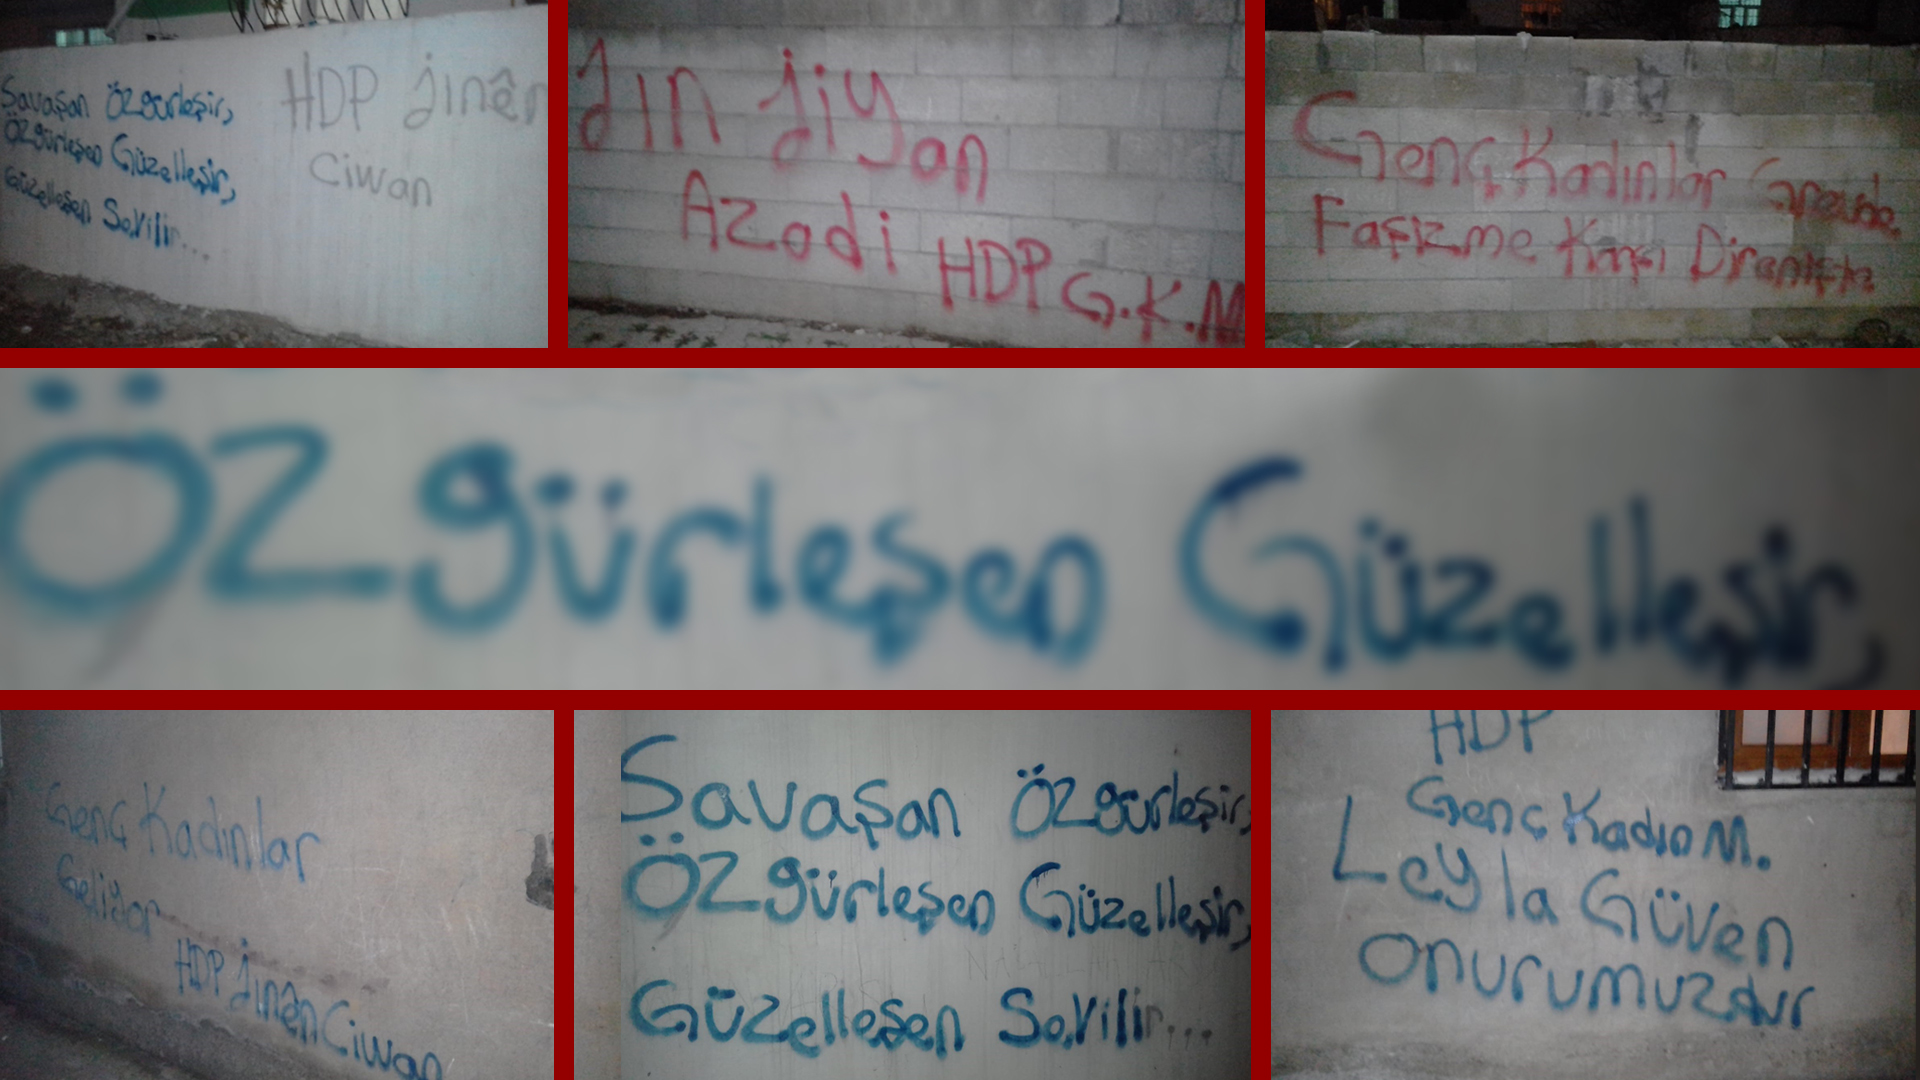 Savaşan Özgürleşir,
Özgürleşen Güzelleşir,
Güzelleşen Sevilir...
HDP Jinên
Ciwan
Jın Jiyan
Azadi HDP G.K.M
Genç Kadınlar Grevde
Faşizme Karşı Direnişte
Özgürleşen Güzelleşir,
Genç Kadınlar
Geliyor
HDP Jınên Ciwan
Savaşan Özgürleşir,
Özgürleşen Güzelleşir,
Güzelleşen Sevilir...
HDP
Genç Kadın M.
Leyla Güven
Onurumuzdur